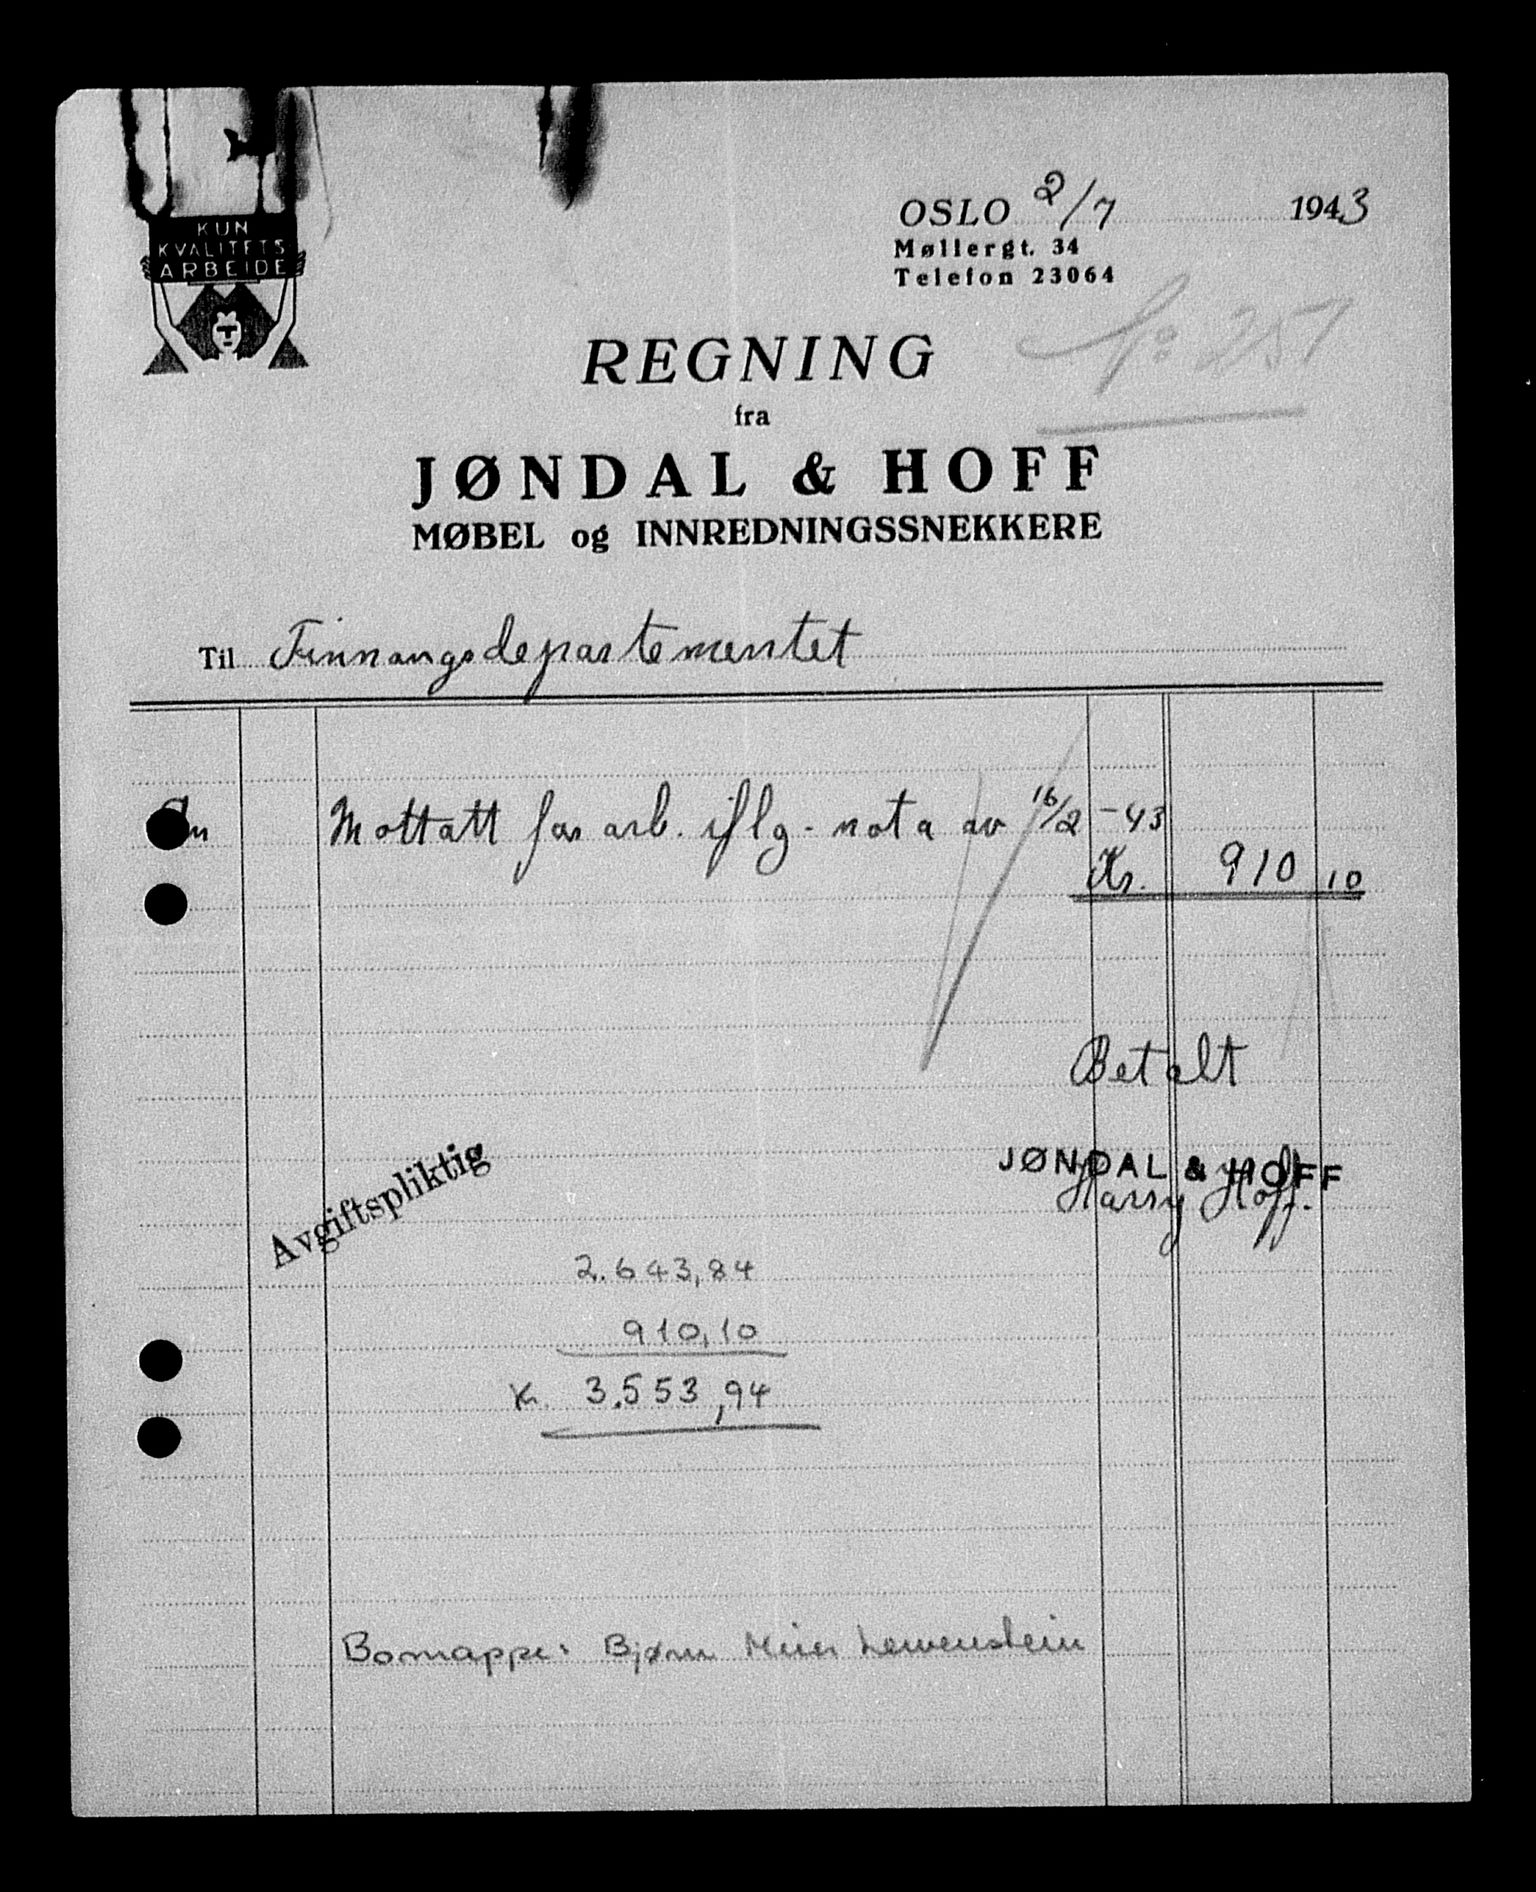 KUN
KVALITETS
ARBEIDE
OSLO 2/7 1943
Møllergt. 34
Telefon 23064
257
REGNING
fra
JØNDAL & HOFF
MØBEL og INNREDNINGSSNEKKERE
Til Finnangsdepartementet
Mottatt for arb. iflg. nota av 16/2 - 43
Kr. 910 10
Betalt
JØNDAL & HOFF
Harry Hoff.
Avgiftspliktig
2.643,84
910,10
Kr. 3.553,94
Bomappe: Bjørn Meier Lewenstein